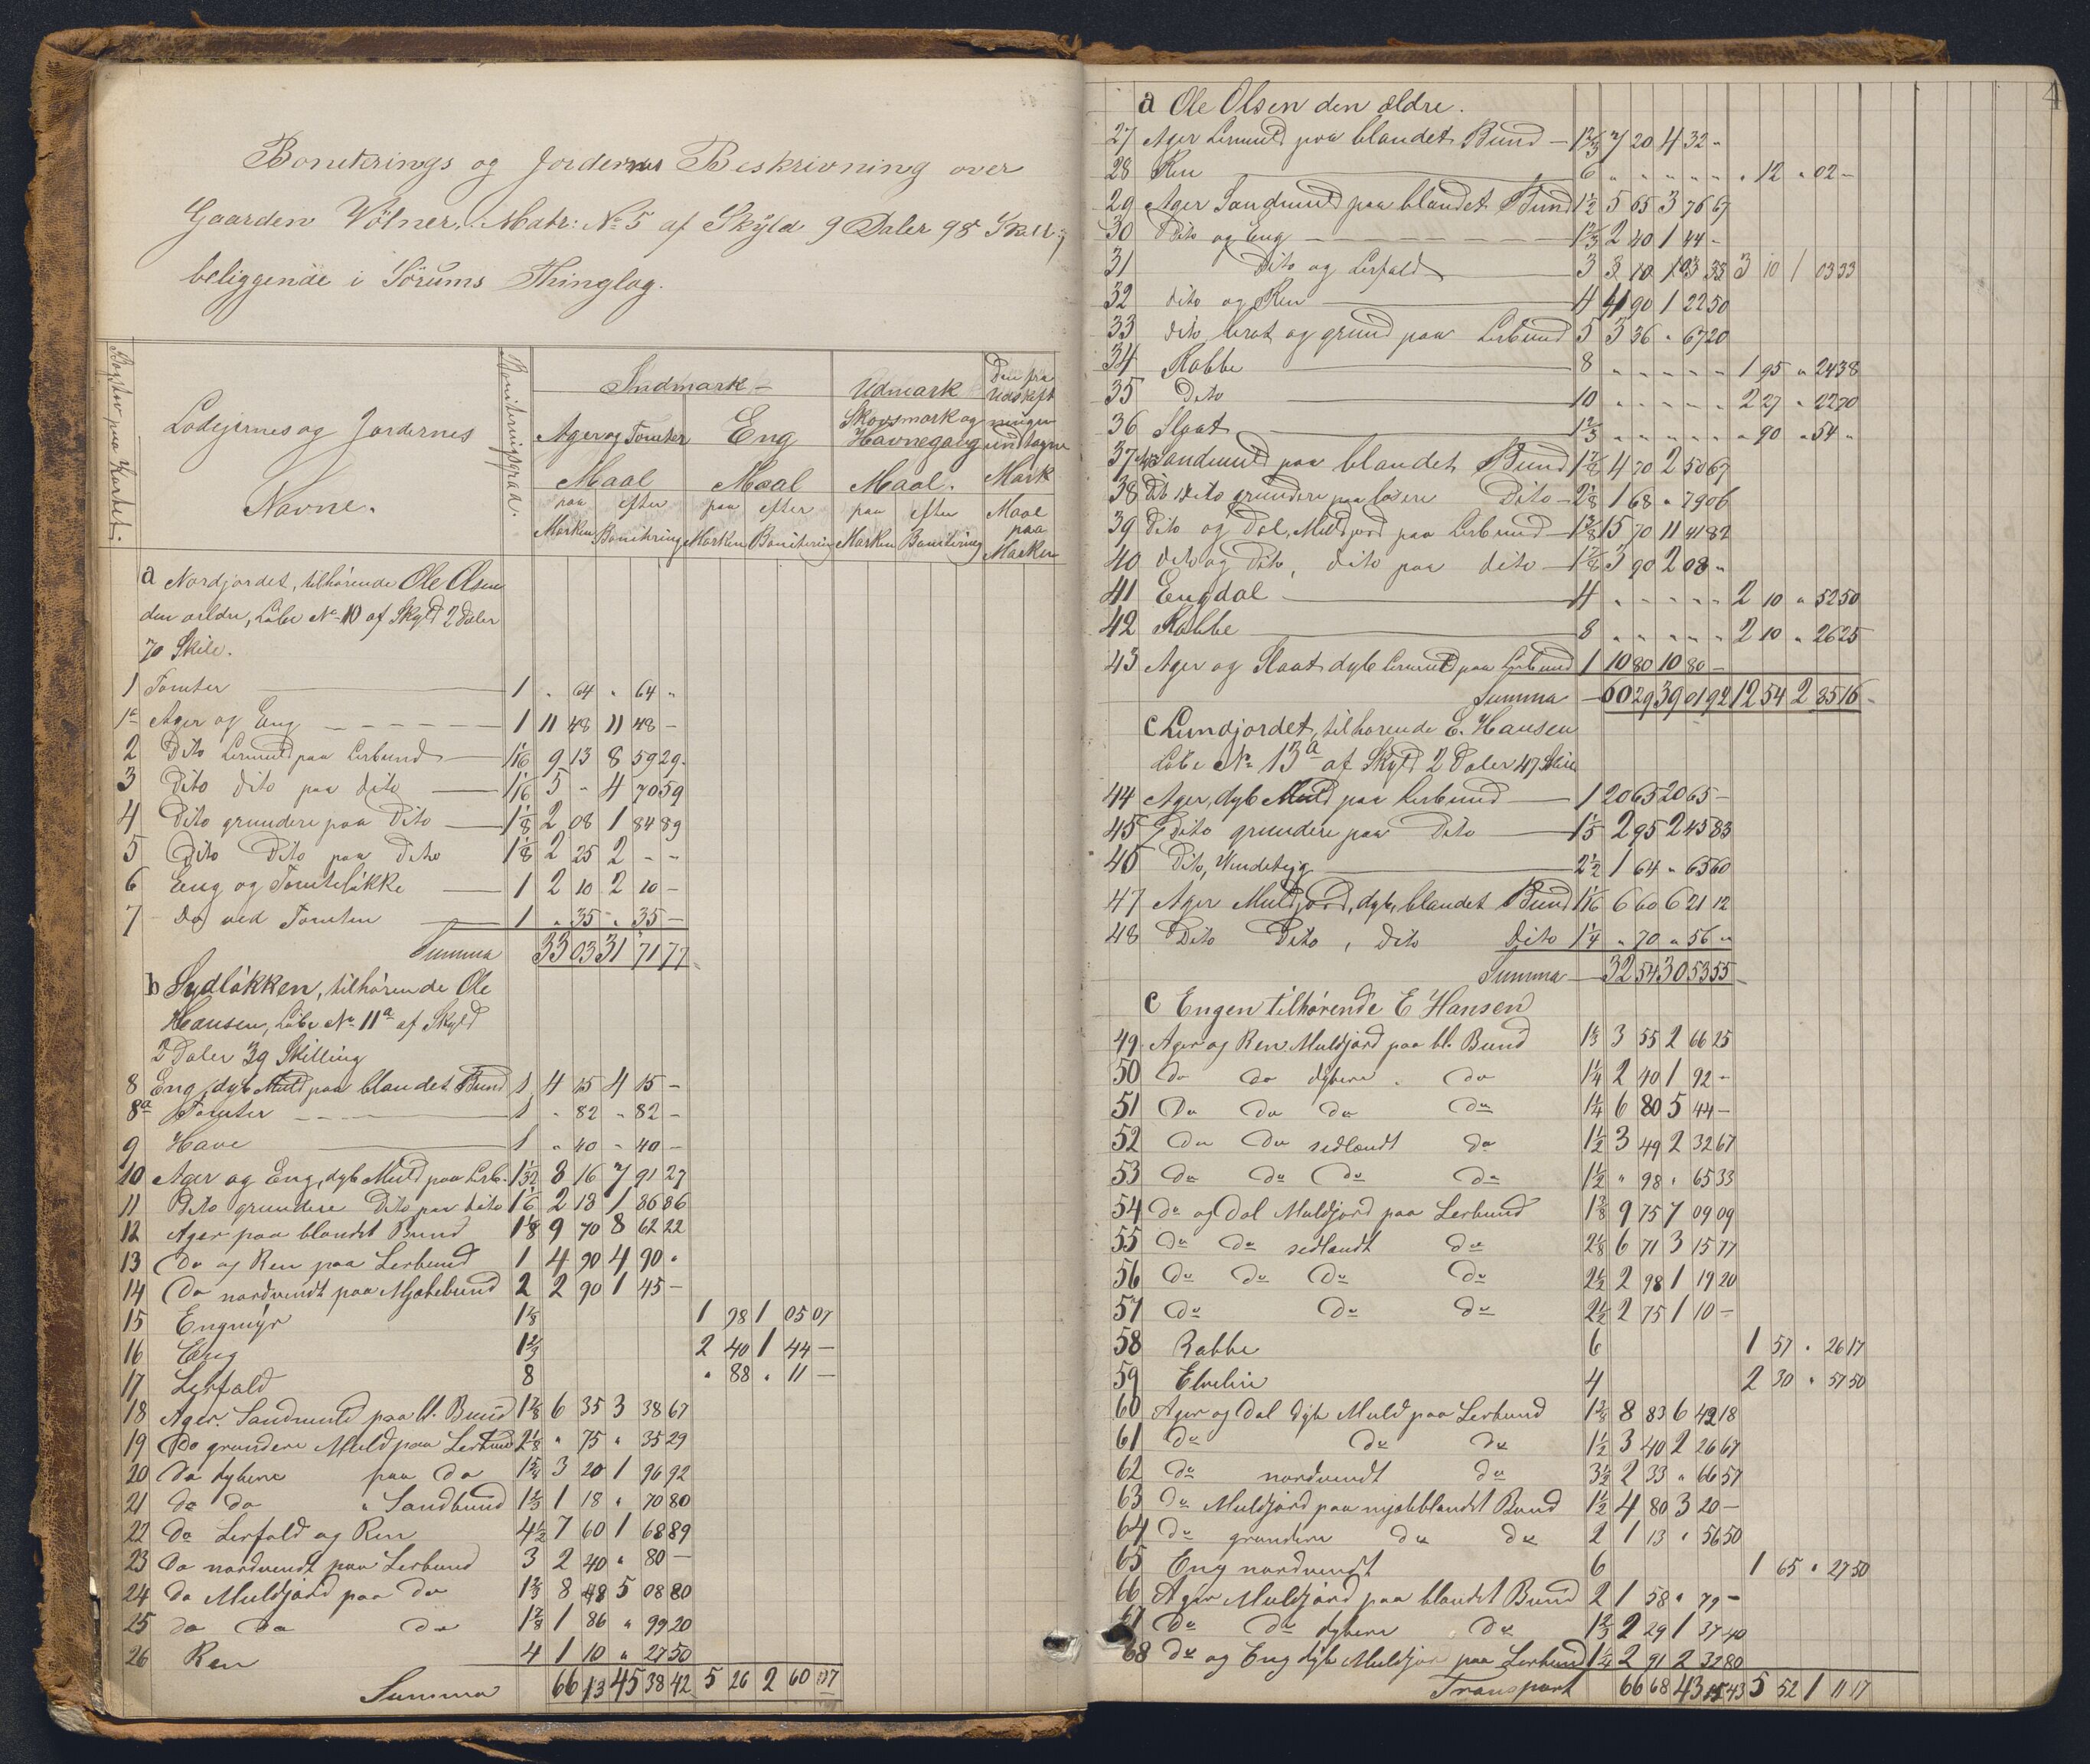 Boniterings og Jordernes Beskrivning over
Gaarden Völner, Matr: No 5 af Skyld 9 Daler 98 Skill:
beliggende i Sörums Thinglag.
Bogstav paa Kartet.
Lodejernes og Jordernes
Navne.
Boniteringsgrad.
Indmark
Ager og Tomter
Eng
Udmark
Skovsmark og
Havnegang
Den fra
Udskift
ningen
undtagne
Mark
Maal
Maal
Maal.
Maal
paa
Marken
paa efter paa efter paa efter
Marken Bonitering Marken Bonitering Marken Bonitering
a Nordjordet, tilhörende Ole Olsen
den ældre, Löbe No 10 af Skyld 2 Daler
70 Skill.
1 Tomter 1 " 64 " 64 "
1a Ager og Eng 1 11 48 11 48 -
2 Dito Lermuld paa Lerbund 1 1/16 9 13 8 59 29
3 Dito dito paa dito 1 1/16 5 - 4 70 59
4 Dito grundere paa Dito 1 1/8 2 08 1 84 89
5 Dito Dito paa Dito 1 1/8 2 25 2 - -
6 Eng og Tomtelökke 1 2 10 2 10 -
7 Do ved Tomten 1 " 35 " 35 -
Summa 33 03 31 71 77
b Sydlökken, tilhörende Ole
Hansen, Löbe No 11a af Skyld
2 Daler 39 Skilling
8 Eng, dyb Muld paa blandet Bund 1 4 15 4 15 -
8a Tomter 1 " 82 " 82 -
9 Have 1 " 40 " 40 -
10 Ager og Eng, dyb Muld paa Lerb. 1 1/32 8 16 7 91 27
11 Dito grundere Dito paa dito 1 1/6 2 18 1 86 86
12 Ager paa blandet Bund 1 1/8 9 70 8 62 22
13 Do og Ren paa Lerbund 1 4 90 4 90 "
14 Do nordvendt paa Mjælebund 2 2 90 1 45 -
15 Engmyr 1 7/8 1 98 1 05 07
16 Eng 1 2/3 2 40 1 44 -
17 Lerfald 8 " 88 " 11 -
18 Ager Sandmuld paa bl. Bund 1 7/8 6 35 3 38 67
19 Do grundere Muld paa Lerbund 2 1/8 " 75 " 35 29
20 Do dybere paa Do 3 20 1 96 92
21 do do " Sandbund 1 2/3 1 18 " 70 80
22 Do Lerfald og Ren 4 1/2 7 60 1 68 89
23 Do nordvendt paa Lerbund 3 2 40 " 80 -
24 do Muldjord paa do 1 2/3 8 48 5 08 80
25 do do do 1 7/8 1 86 " 99 20
26 Ren 4 1 10 " 27 50
Summa 66 13 45 38 42 5 26 2 60 07
4
a Ole Olsen den ældre.
27 Ager Lermuld paa blandet Bund 1 2/3 7 20 4 32 "
28 Ren 6 " " " " " " 12 " 02 -
29 Ager Sandmuld paa blandet Bund 1 1/2 5 65 3 76 67
30 Dito og Eng 1 2/3 2 40 1 44 -
31 Dito og Lerfald 3 3 10 1 03 33 3 10 1 03 33
32 dito og Ren 4 4 90 1 22 50
33 dito brat og grund paa Lerbund 5 3 36 " 67 20
34 Rabbe 8 " " " " " 1 95 " 24 38
35 Dito 10 " " " " " 2 27 " 22 70
36 Slaat 1 2/3 " " " " " " 90 " 54 "
37 Sandmuld paa blandet Bund 1 7/8 4 70 2 50 67
38 Dito dito grundere paa lösere Dito 2 1/8 1 68 " 79 06
39 Dito og Dal, Muldjord paa Lerbund 1 3/8 15 70 11 41 82
40 dito og Dito, dito paa dito 1 7/8 3 90 2 08 "
41 Engdal 4 " " " " " 2 10 " 52 50
42 Rabbe 8 " " " " " 2 10 " 26 25
43 Ager og Slaat dyb Lermuld paa Lerbund 1 10 80 10 80 -
Summa 60 29 39 01 92 12 54 2 85 16
c Lundjordet, tilhörende E. Hansen
Löbe No 13a af Skyld 2 Daler 47 Skill
44 Ager, dyb Muld paa Lerbund 1 20 65 20 65 -
45 Dito grundere paa Dito 1 1/5 2 95 2 45 83
46 Dito, Vendeteig 2 1/2 1 64 " 65 60
47 Ager Muldjord, dyb, blandet Bund 1 1/16 6 60 6 21 12
48 Dito Dito, dito dito 1 1/4 " 70 " 56 "
Summa 32 54 30 53 55
c Engen tilhörende E Hansen
49 Ager og Ren Muldjord paa bl. Bund 1 1/3 3 55 2 66 25
50 do do dybere " do 1 1/4 2 40 1 92 -
51 Do do do do 1 1/4 6 80 5 44 -
52 do do sidlændt do 1 1/2 3 49 2 32 67
53 do do do do 1 1/2 " 98 " 65 33
54 do og Dal Muldjord paa Lerbund 1 3/8 9 75 7 09 09
55 do do sidlændt do 2 1/8 6 71 3 15 77
56 do do do do 2 1/2 2 98 1 19 20
57 do do do 2 1/2 2 75 1 10 -
58 Rabbe 6 1 57 " 26 17
59 Elvelin 4 2 30 " 57 50
60 Ager og Dal dyb Muld paa Lerbund 1 3/8 8 83 6 42 18
61 do do do 1 1/2 3 40 2 26 67
62 do nordvendt do 3 1/2 2 33 " 66 57
63 do Muldjord paa mjæleblandet Bund 1 1/2 4 80 3 20 -
64 do grundere do do 2 1 13 " 56 50
65 Eng nordvendt 6 1 65 " 27 50
66 Ager Muldjord paa blandet Bund 2 1 58 " 79 -
67 do do dybere do 1 2/3 2 29 1 37 40
68 do og Eng dyb Muldjor paa Lerbund 1 1/4 2 91 2 32 80
Transport 66 68 43 15 43 5 52 1 11 17